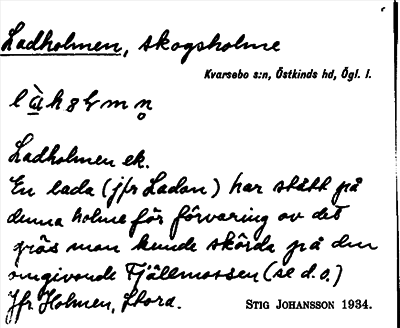 Ladholmen, skogsholme
Kvarsebo s:n, Östkinds hd, Ögl. l.
Ladholmen ek.
En lada (jfr Ladan) har stått på
denna holme för förvaring av det
gräs man kunde skörda på den
omgivande Fjällmossen (se d.o.)
Jfr Holmen, Stora.
STIG JOHANSSON 1934.